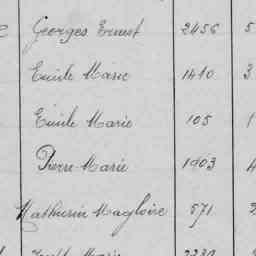 Georges Ernest 2456 5
Emile Marie 1410 3
Emile Marie 105 1
Pierre Marie 1903 4
Mathurin Magloire 571 2
Marie 2230